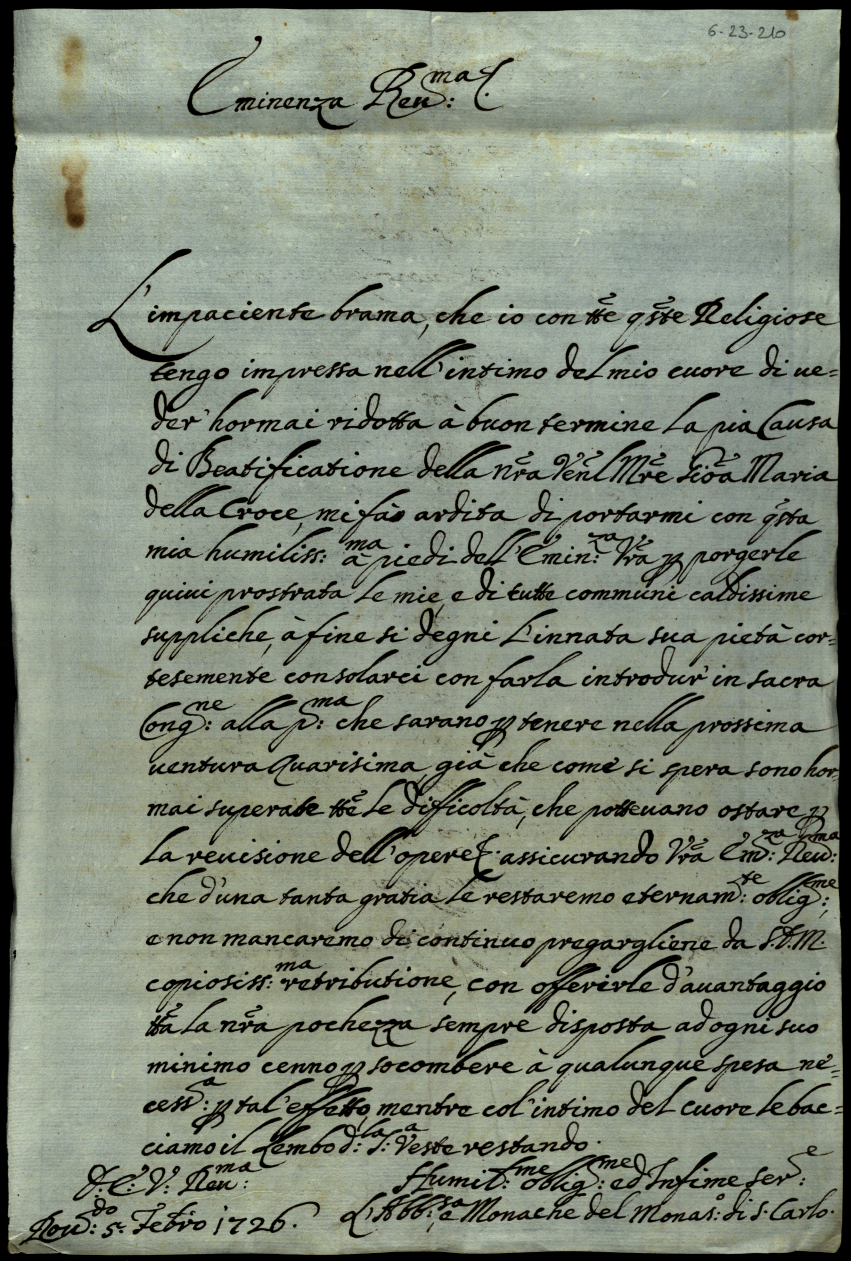 6-23-210
Eminenza Reu:ma
L'impaciente brama, che io con tt̃e qs̃te Religiose
tengo impressa nell'intimo del mio cuore di ue=
der' hormai ridotta à buon termine la pia Causa
di Beatificatione della nr̃a Ven̄l Mr̃e Gioã Maria
della Croce, mi fà ardita di portarmi con qs̃ta
mia humiliss:ma à piedi dell'Emin:za Vr̃a ꝑ porgerle
quiui prostrata le mie, e di tutte communi caldissime
suppliche, à fine si degni l'innata sua pietà cor=
tesemente consolarci con farla introdur' in sacra
Cong:ne alla p:ma che sarano ꝑ tenere nella prossima
uentura Quarisima già che come si spera sono hor=
mai superate tt̃e le difficoltà, che potteuano ostare ꝑ
la reuisione dell'opere. assicurando Vr̃a Em:za Reu:ma
che d'una tanta gratia le restaremo eternam:te oblig:me,
e non mancaremo di continuo pregargliene da S.D.M.
copiosiss:ma retributione, con offerirle d'auantaggio
tt̃a la nr̃a pochezza sempre disposta ad ogni suo
minimo cenno ꝑ socombere à qualunque spesa ne=
cess:a ꝑ tal'effetto, mentre col'intimo del cuore le bac=
ciamo il Lembo d:la S:a Veste restando.
D: E: V: Reu:ma
Humil:me oblig:me ed Infime Ser:e
Rou:do 5: Febro 1726.
L'Abb:sa e Monache del Monas:o di S. Carlo.